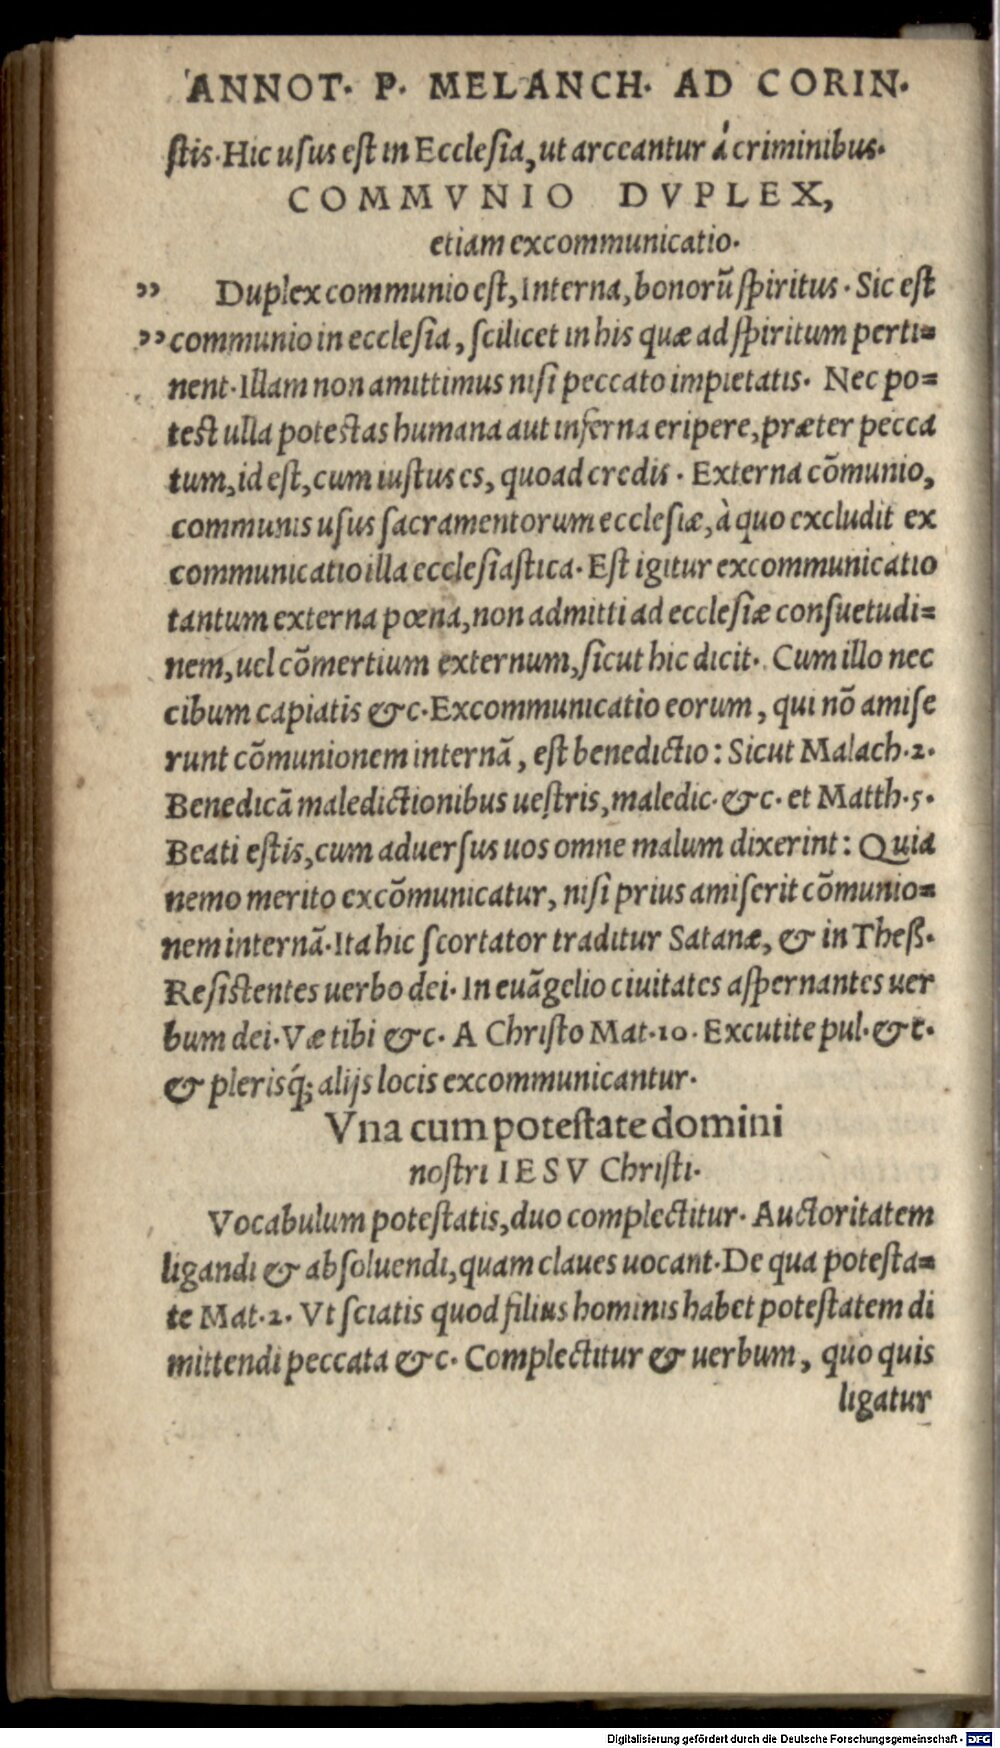 ANNOT. P. MELANCH. AD CORIN.
ſtis. Hic uſus eſt in Eccleſia, ut arceantur á criminibus.
COMMVNIO DVPLEX,
etiam excommunicatio.
" Duplex communio eſt, Interna, bonorũ ſpiritus. Sic eſt
" communio in eccleſia, ſcilicet in his quæ ad ſpiritum perti=
nent. Illam non amittimus niſi peccato impietatis. Nec po=
test ulla poteſtas humana aut inferna eripere, præter pecca
tum, id eſt, cum iuſtus es, quoad credis. Externa cõmunio,
communis uſus ſacramentorum eccleſiæ, à quo excludit ex
communicatio illa eccleſiaſtica. Eſt igitur excommunicatio
tantum externa pœna, non admitti ad eccleſiæ conſuetudi=
nem, uel cõmertium externum, ſicut hic dicit. Cum illo nec
cibum capiatis &c. Excommunicatio eorum, qui nõ amiſe
runt cõmunionem internã, eſt benedictio: Sicut Malach. 2.
Benedicã maledictionibus ueſtris, maledic. &c. et Matth. 5.
Beati eſtis, cum aduerſus uos omne malum dixerint: Quia
nemo merito excõmunicatur, niſi prius amiſerit cõmunio=
nem internã. Ita hic ſcortator traditur Satanæ, & in Theß.
Reſistentes uerbo dei. In euãgelio ciuitates aſpernantes uer
bum dei. Væ tibi &c. A Chriſto Mat. 10. Excutite pul. &c.
& plerisq́; alijs locis excommunicantur.
Vna cum poteſtate domini
noſtri IESV Chriſti.
Vocabulum poteſtatis, duo complectitur. Auctoritatem
ligandi & abſoluendi, quam claues uocant. De qua poteſta=
te Mat. 2. Vt ſciatis quod filius hominis habet poteſtatem di
mittendi peccata &c. Complectitur & uerbum, quo quis
ligatur
Digitalisierung gefördert durch die Deutsche Forschungsgemeinschaft - DFG